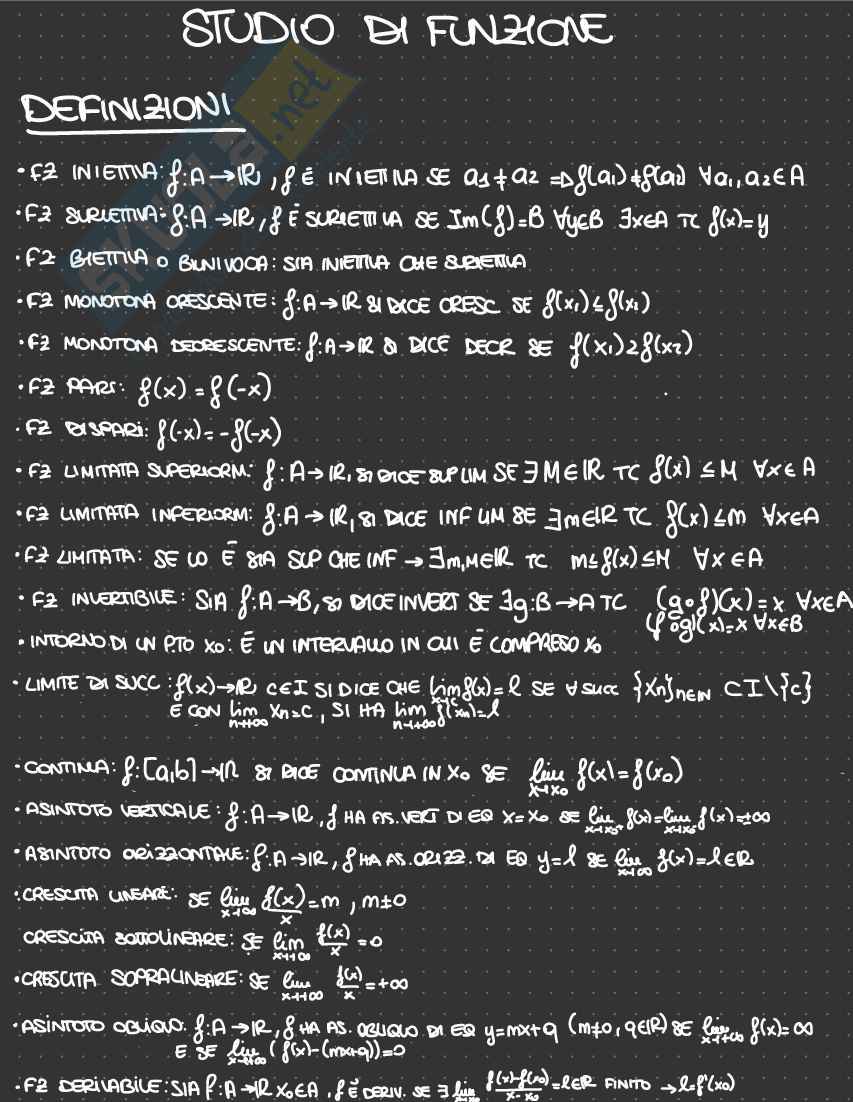 STUDIO DI FUNZIONE
DEFINIZIONI
• FZ INIETTIVA: f: A→ℝ, f È INIETTIVA SE a₁≠a₂ ⇒ f(a₁)≠f(a₂) ∀a₁,a₂∈A
• FZ SURIETTIVA: f: A→ℝ, f È SURIETTIVA SE Im(f)=B ∀y∈B ∃x∈A TC f(x)=y
• FZ BIETTIVA O BIUNIVOCA: SIA INIETTIVA CHE SURIETTIVA
• FZ MONOTONA CRESCENTE: f: A→ℝ SI DICE CRESC. SE f(x₁)≤f(x₂)
• FZ MONOTONA DECRESCENTE: f: A→ℝ SI DICE DECR SE f(x₁)≥f(x₂)
• FZ PARI: f(x)=f(-x)
• FZ DISPARI: f(-x)=-f(-x)
• FZ LIMITATA SUPERIORM: f: A→ℝ, SI DICE SUP LIM SE ∃M∈ℝ TC f(x)≤M ∀x∈A
• FZ LIMITATA INFERIORM: f: A→ℝ, SI DICE INF LIM SE ∃m∈ℝ TC f(x)≤m ∀x∈A
• FZ LIMITATA: SE LO È SIA SUP CHE INF → ∃m,M∈ℝ TC m≤f(x)≤M ∀x∈A
• FZ INVERTIBILE: SIA f: A→B, SI DICE INVERT SE ∃g: B→A TC (g∘f)(x)=x ∀x∈A
(f∘g)(x)=x ∀x∈B
• INTORNO DI UN PTO x₀: È UN INTERVALLO IN CUI È COMPRESO x₀
• LIMITE DI SUCC: f(x)→ℝ c∈I SI DICE CHE lim x→c f(x)=l SE ∀ succ {xn}n∈ℕ ⊂ I\{c}
E CON lim n→+∞ xn=c, SI HA lim n→+∞ f(xn)=l
• CONTINUA: f: [a,b]→ℝ SI DICE CONTINUA IN x₀ SE lim x→x₀ f(x)=f(x₀)
• ASINTOTO VERTICALE: f: A→ℝ, f HA AS. VERT DI EQ x=x₀ SE lim x→x₀⁺ f(x)=lim x→x₀⁻ f(x)=±∞
• ASINTOTO ORIZZONTALE: f: A→ℝ, f HA AS. ORIZZ. DI EQ y=l SE lim x→∞ f(x)=l∈ℝ
• CRESCITA LINEARE: SE lim x→∞ f(x)/x=m, m≠0
CRESCITA SOTTOLINEARE: SE lim x→+∞ f(x)/x=0
• CRESCITA SOPRALINEARE: SE lim x→+∞ f(x)/x=+∞
• ASINTOTO OBLIQUO: f: A→ℝ, f HA AS. OBLIQUO DI EQ y=mx+q (m≠0, q∈ℝ) SE lim x→+∞ f(x)=∞
E SE lim x→+∞ (f(x)-(mx+q))=0
• FZ DERIVABILE: SIA f: A→ℝ x₀∈A, f È DERIV. SE ∃ lim x→x₀ f(x)-f(x₀)/x-x₀=l∈ℝ FINITO → l=f'(x₀)
SKUOLA.net